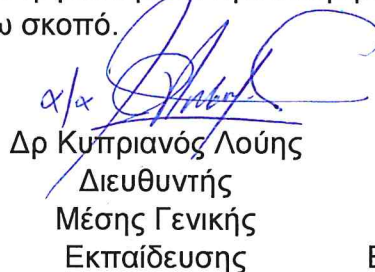 ω σκοπό.
α/α
Δρ Κυπριανός Λούης
Διευθυντής
Μέσης Γενικής
Εκπαίδευσης